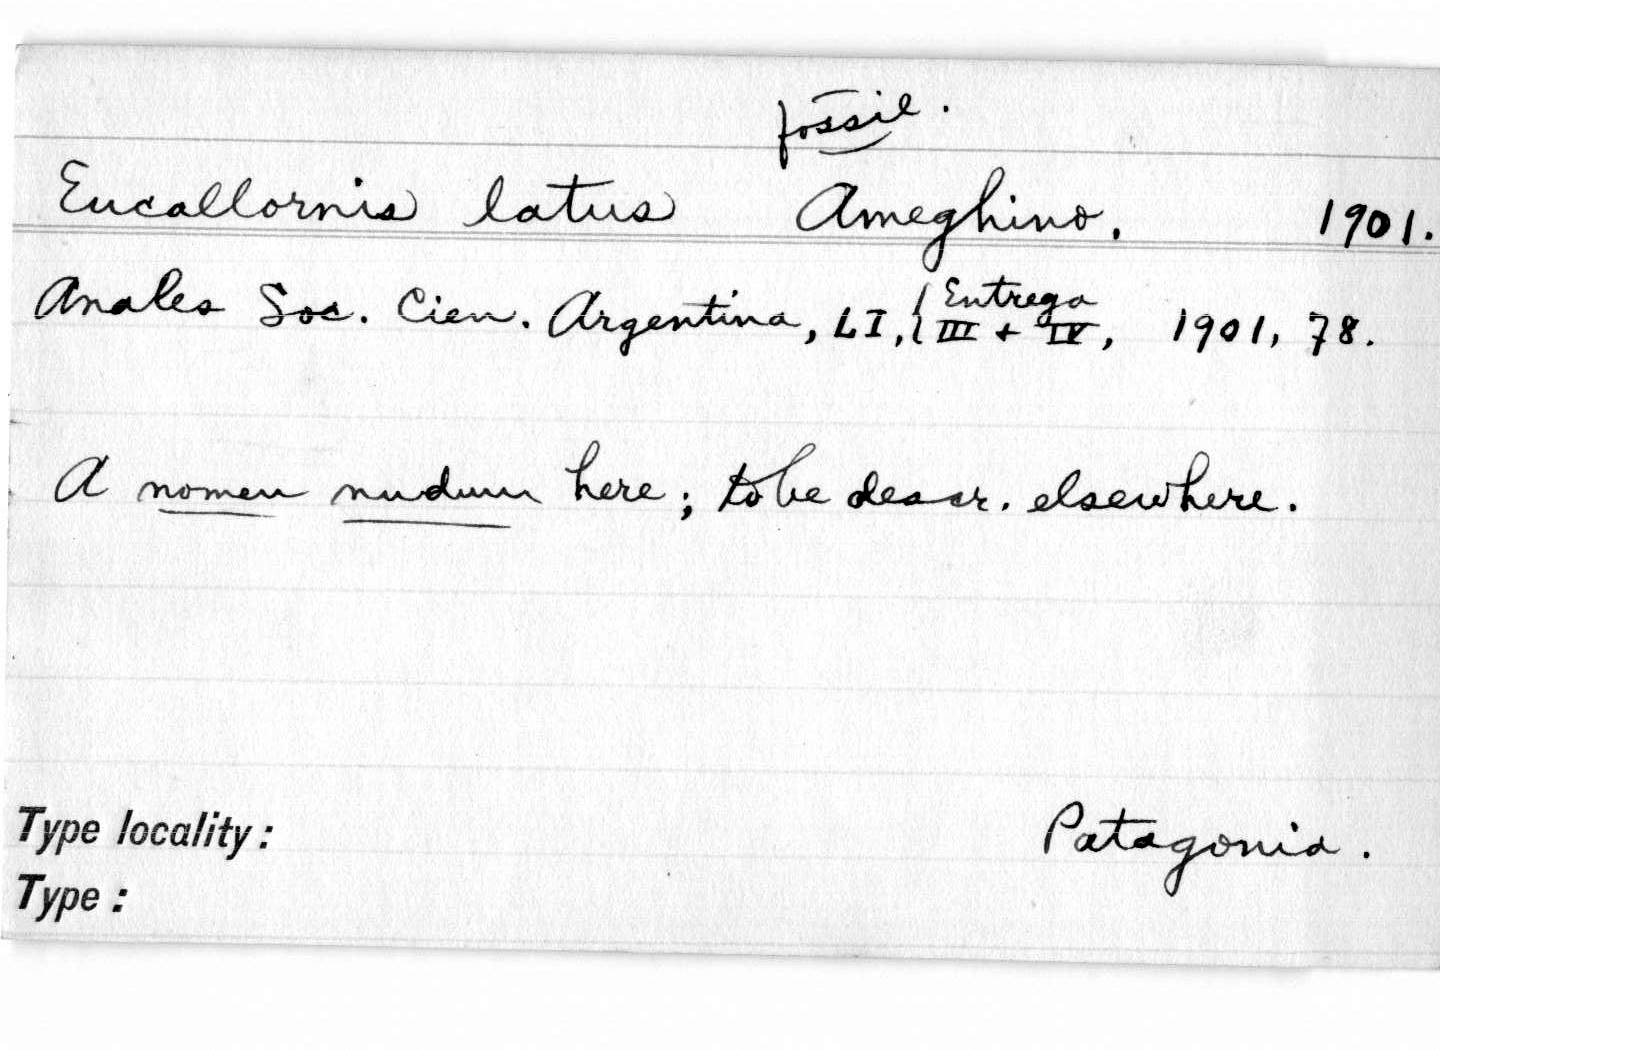 fossil.
Eucallornis latus Ameghino. 1901.
Anales Soc. Cien. Argentina, LI, { Entrega III + IV, 1901, 78.
A nomen nudum here; to be descr. elsewhere.
Type locality: Patagonia.
Type: